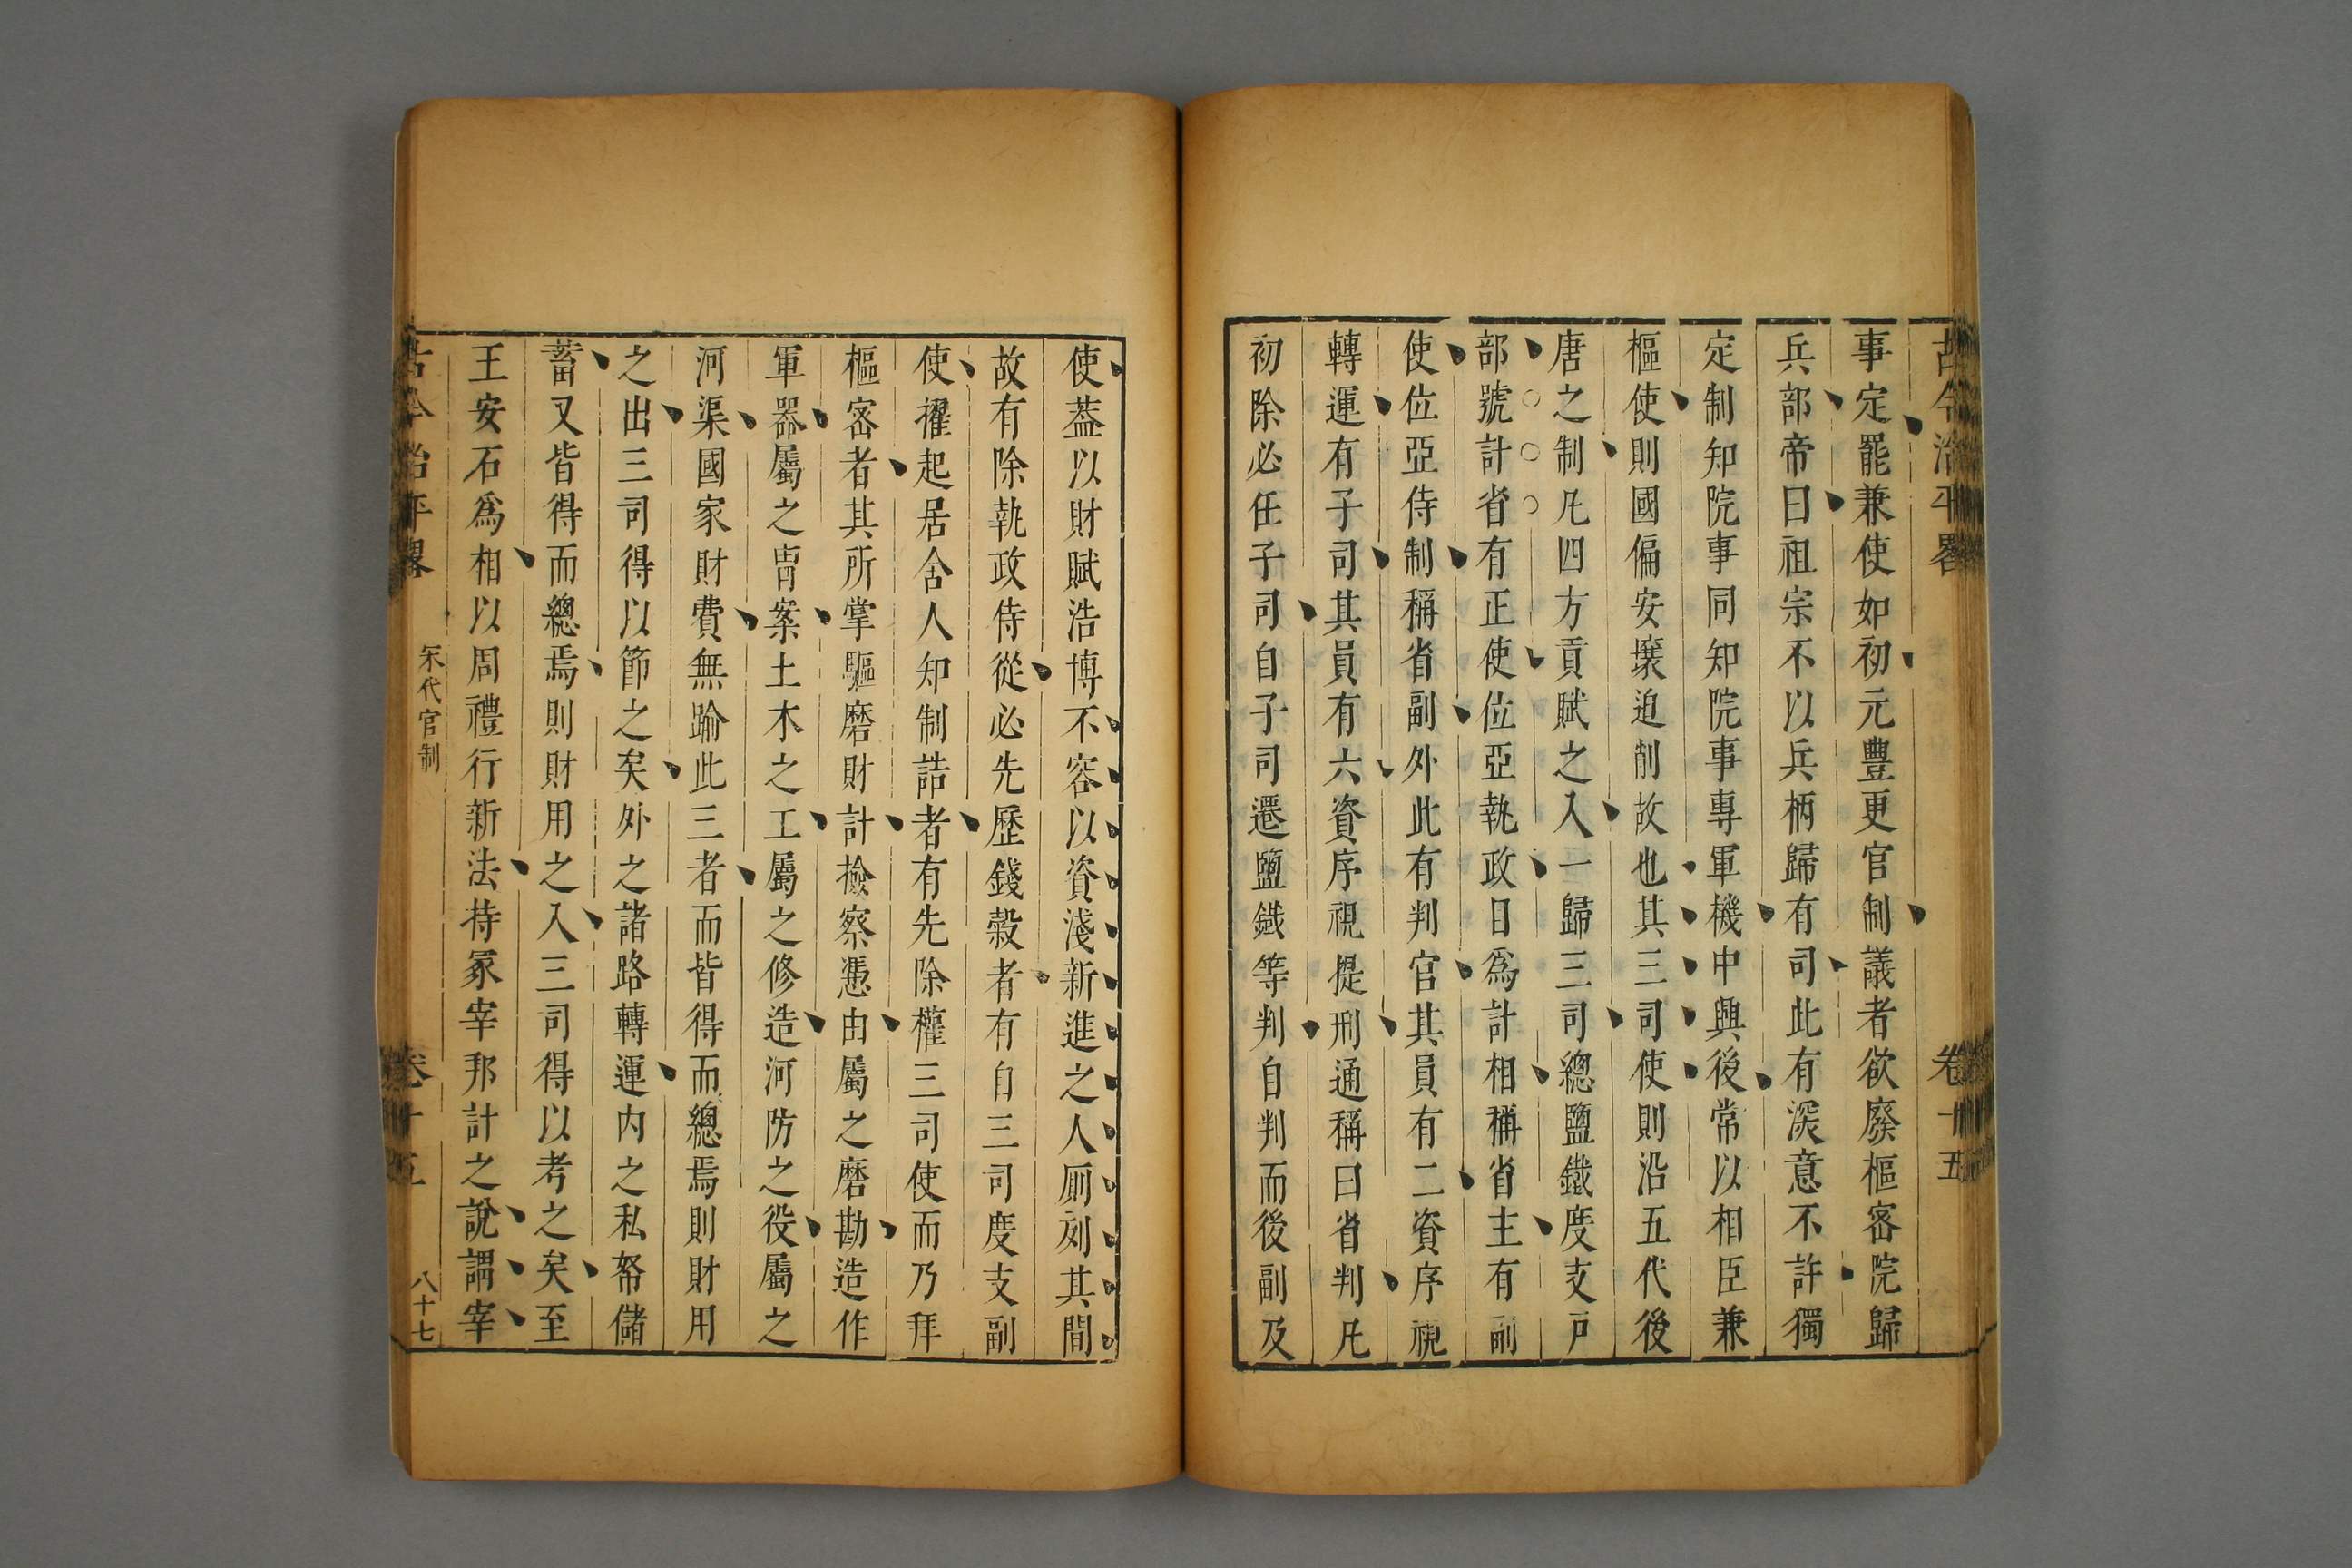 古今治平畧 卷十五
事定罷兼使如初元豐更官制議者欲廢樞密院歸
兵部帝曰祖宗不以兵柄歸有司此有深意不許獨
定制知院事同知院事專軍機中興後常以相臣兼
樞使則國偏安壤迫削故也其三司使則沿五代後
唐之制凡四方貢賦之入一歸三司總鹽鐵度支戸
部號計省有正使位亞執政日爲計相稱省主有副
使位亞侍制稱省副外此有判官其員有二資序視
轉運有子司其員有六資序視提刑通稱曰省判凡
初除必任子司自子司遷鹽鐵等判自判而後副及
使葢以財賦浩博不容以資淺新進之人廁列其間
故有除執政侍從必先歷錢穀者有自三司度支副
使擢起居舍人知制誥者有先除權三司使而乃拜
樞密者其所掌驅磨財計撿察憑由屬之磨勘造作
軍器屬之冑案土木之工屬之修造河防之役屬之
河渠國家財費無踰此三者而皆得而總焉則財用
之出三司得以節之矣外之諸路轉運内之私帑儲
蓄又皆得而總焉則財用之入三司得以考之矣至
王安石爲相以周禮行新法持冢宰邦計之說謂宰
古今治平畧 宋代官制 卷十五 八十七